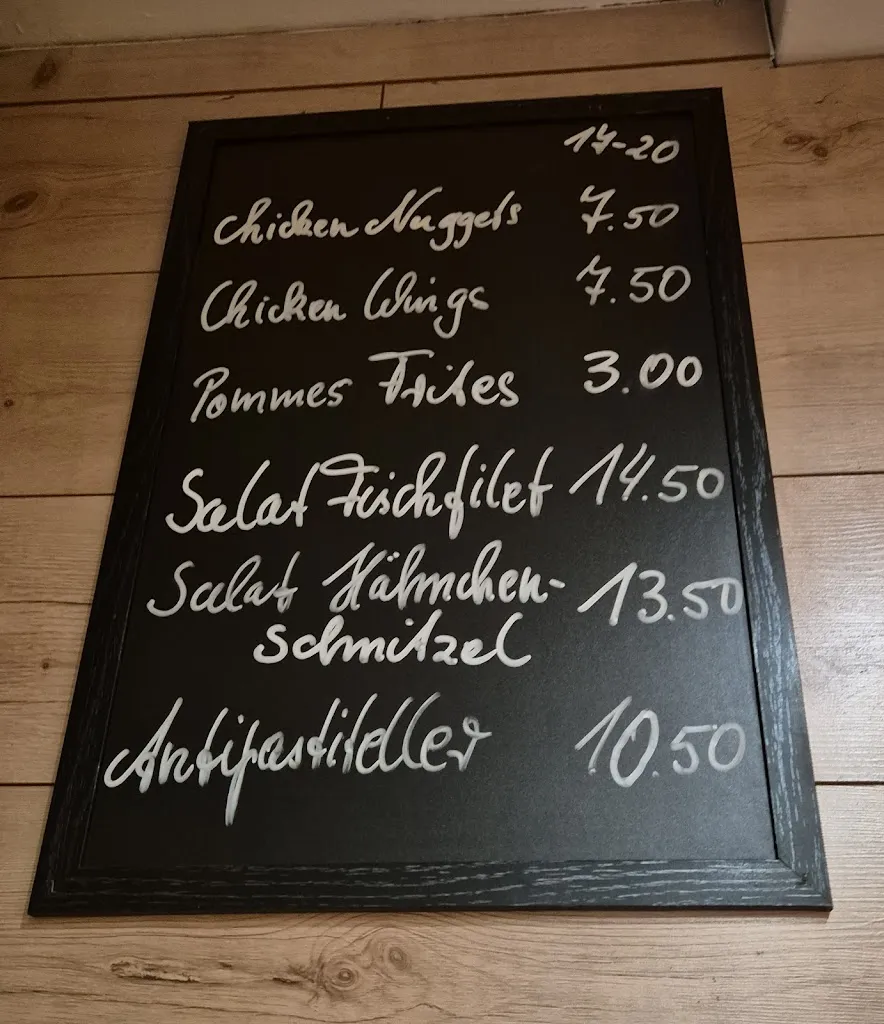 17-20
Chicken Nuggets 7.50
Chicken Wings 7.50
Pommes Frites 3.00
Salat Fischfilet 14.50
Salat Hähnchen- 13.50
schnitzel
Antipastiteller 10.50